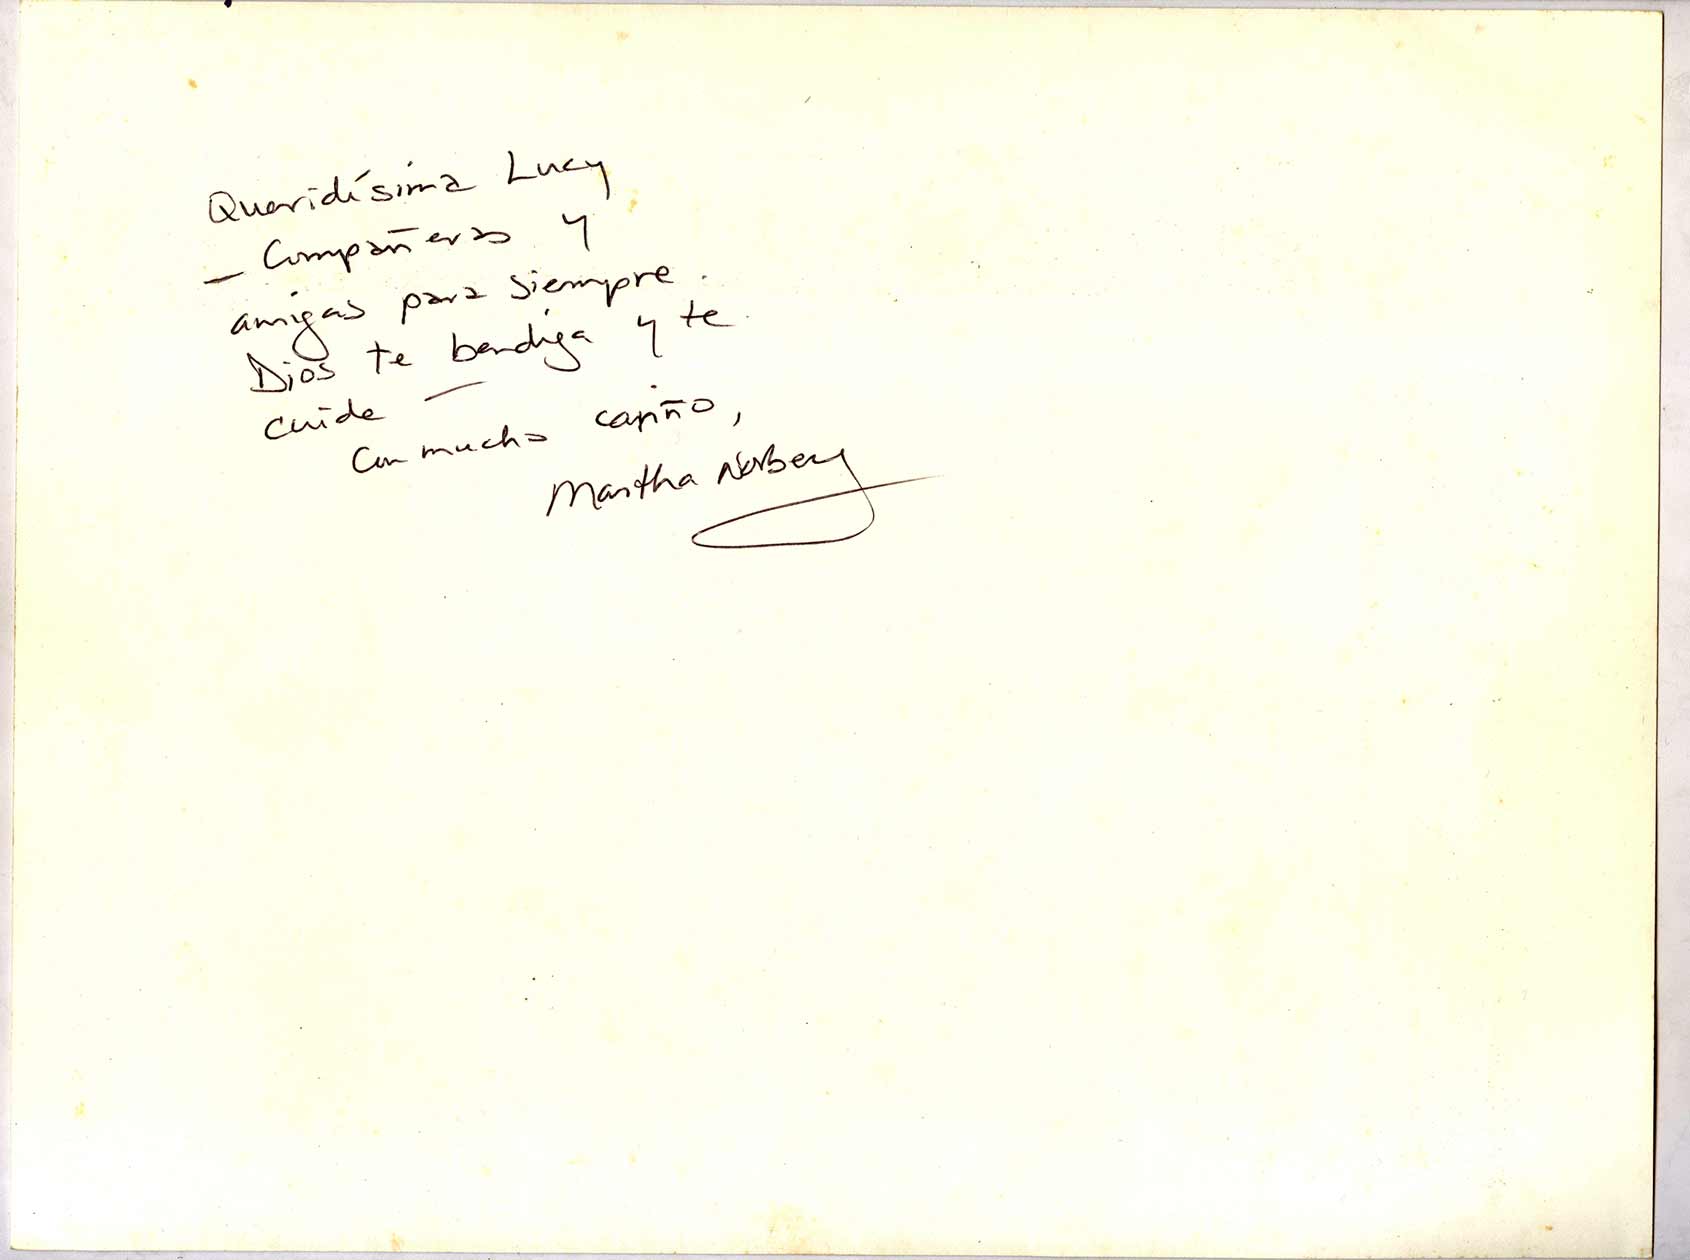 Queridísima Lucy
— Compañeras y
amigas para siempre.
Dios te bendiga y te
cuide —
Con mucho cariño,
Martha